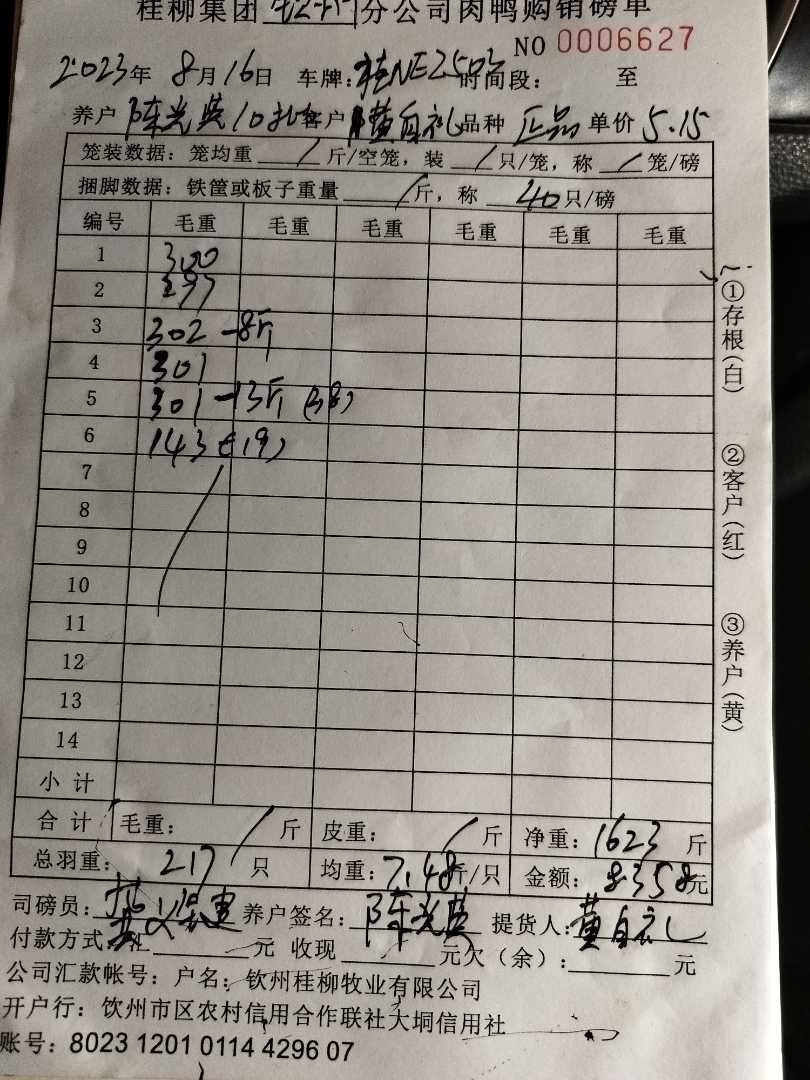 桂柳集团 分公司肉鸭购销磅单
NO 0006627
2023年 8月16日 车牌:桂NE2503 时间段: 至
养户 陈光英 10 客户 黄自礼 品种 正品 单价 5.15
笼装数据：笼均重 / 斤/空笼，装 / 只/笼，称 / 笼/磅
捆脚数据：铁筐或板子重量 / 斤，称 40 只/磅
编号 毛重 毛重 毛重 毛重 毛重 毛重
1 300
2 297
3 302 -8斤
4 301
5 301 -13斤 (38)
6 143 (19)
7
8
9
10
11
12
13
14
小计
合计 毛重: / 斤 皮重: / 斤 净重: 1623 斤
总羽重: 217 只 均重: 7.48 斤/只 金额: 8358元
司磅员: 养户签名: 陈光英 提货人: 黄自礼
付款方式: 汇 元 收现 元欠（余）: 元
公司汇款帐号：户名：钦州桂柳牧业有限公司
开户行：饮州市区农村信用合作联社大垌信用社
账号：8023 1201 0114 4296 07
①存根(白) ②客户(红) ③养户(黄)